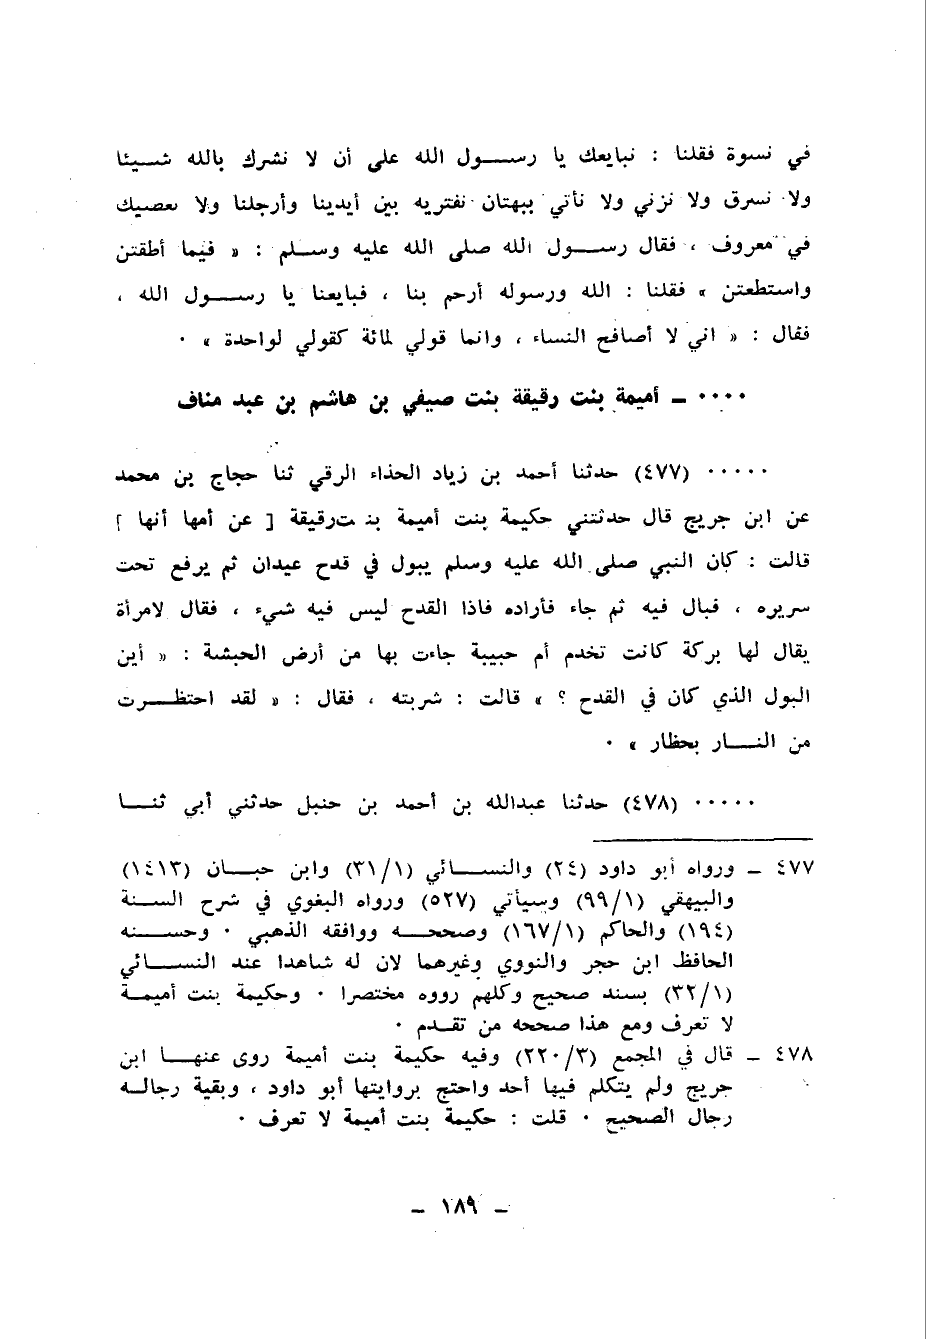 في نسوة فقلنا : نبايعك يا رسول الله على أن لا نشرك بالله شيئا
ولا نسرق ولا نزني ولا نأتي ببهتان نفتريه بين أيدينا وأرجلنا ولا نعصيك
في معروف ، فقال رسول الله صلى الله عليه وسلم : « فيما أطقتن
واستطعتن » فقلنا : الله ورسوله أرحم بنا ، فبايعنا يا رسول الله ،
فقال : « اني لا أصافح النساء ، وانما قولي لمائة كقولي لواحدة » ٠
٠٠٠٠ ــ أميمة بنت رقيقة بنت صيفي بن هاشم بن عبد مناف
٠٠٠٠٠ (٤٧٧) حدثنا أحمد بن زياد الحذاء الرقي ثنا حجاج بن محمد
عن ابن جريج قال حدثتني حكيمة بنت أميمة بنت رقيقة [ عن أمها أنها ]
قالت : كان النبي صلى الله عليه وسلم يبول في قدح عيدان ثم يرفع تحت
سريره ، فبال فيه ثم جاء فأراده فاذا القدح ليس فيه شيء ، فقال لامرأة
يقال لها بركة كانت تخدم أم حبيبة جاءت بها من أرض الحبشة : « أين
البول الذي كان في القدح ؟ » قالت : شربته ، فقال : « لقد احتظرت
من النار بحظار » ٠
٠٠٠٠٠ (٤٧٨) حدثنا عبدالله بن أحمد بن حنبل حدثني أبي ثنا
٤٧٧ ــ ورواه أبو داود (٢٤) والنسائي (٣١/١) وابن حبان (١٤١٣)
والبيهقي (٩٩/١) وسيأتي (٥٢٧) ورواه البغوي في شرح السنة
(١٩٤) والحاكم (١٦٧/١) وصححه ووافقه الذهبي ٠ وحسنه
الحافظ ابن حجر والنووي وغيرهما لان له شاهدا عند النسائي
(٣٢/١) بسند صحيح وكلهم رووه مختصرا ٠ وحكيمة بنت أميمة
لا تعرف ومع هذا صححه من تقدم ٠
٤٧٨ ــ قال في المجمع (٢٢٠/٣) وفيه حكيمة بنت أميمة روى عنها ابن
جريج ولم يتكلم فيها أحد واحتج بروايتها أبو داود ، وبقية رجاله
رجال الصحيح ٠ قلت : حكيمة بنت أميمة لا تعرف ٠
ــ ١٨٩ ــ